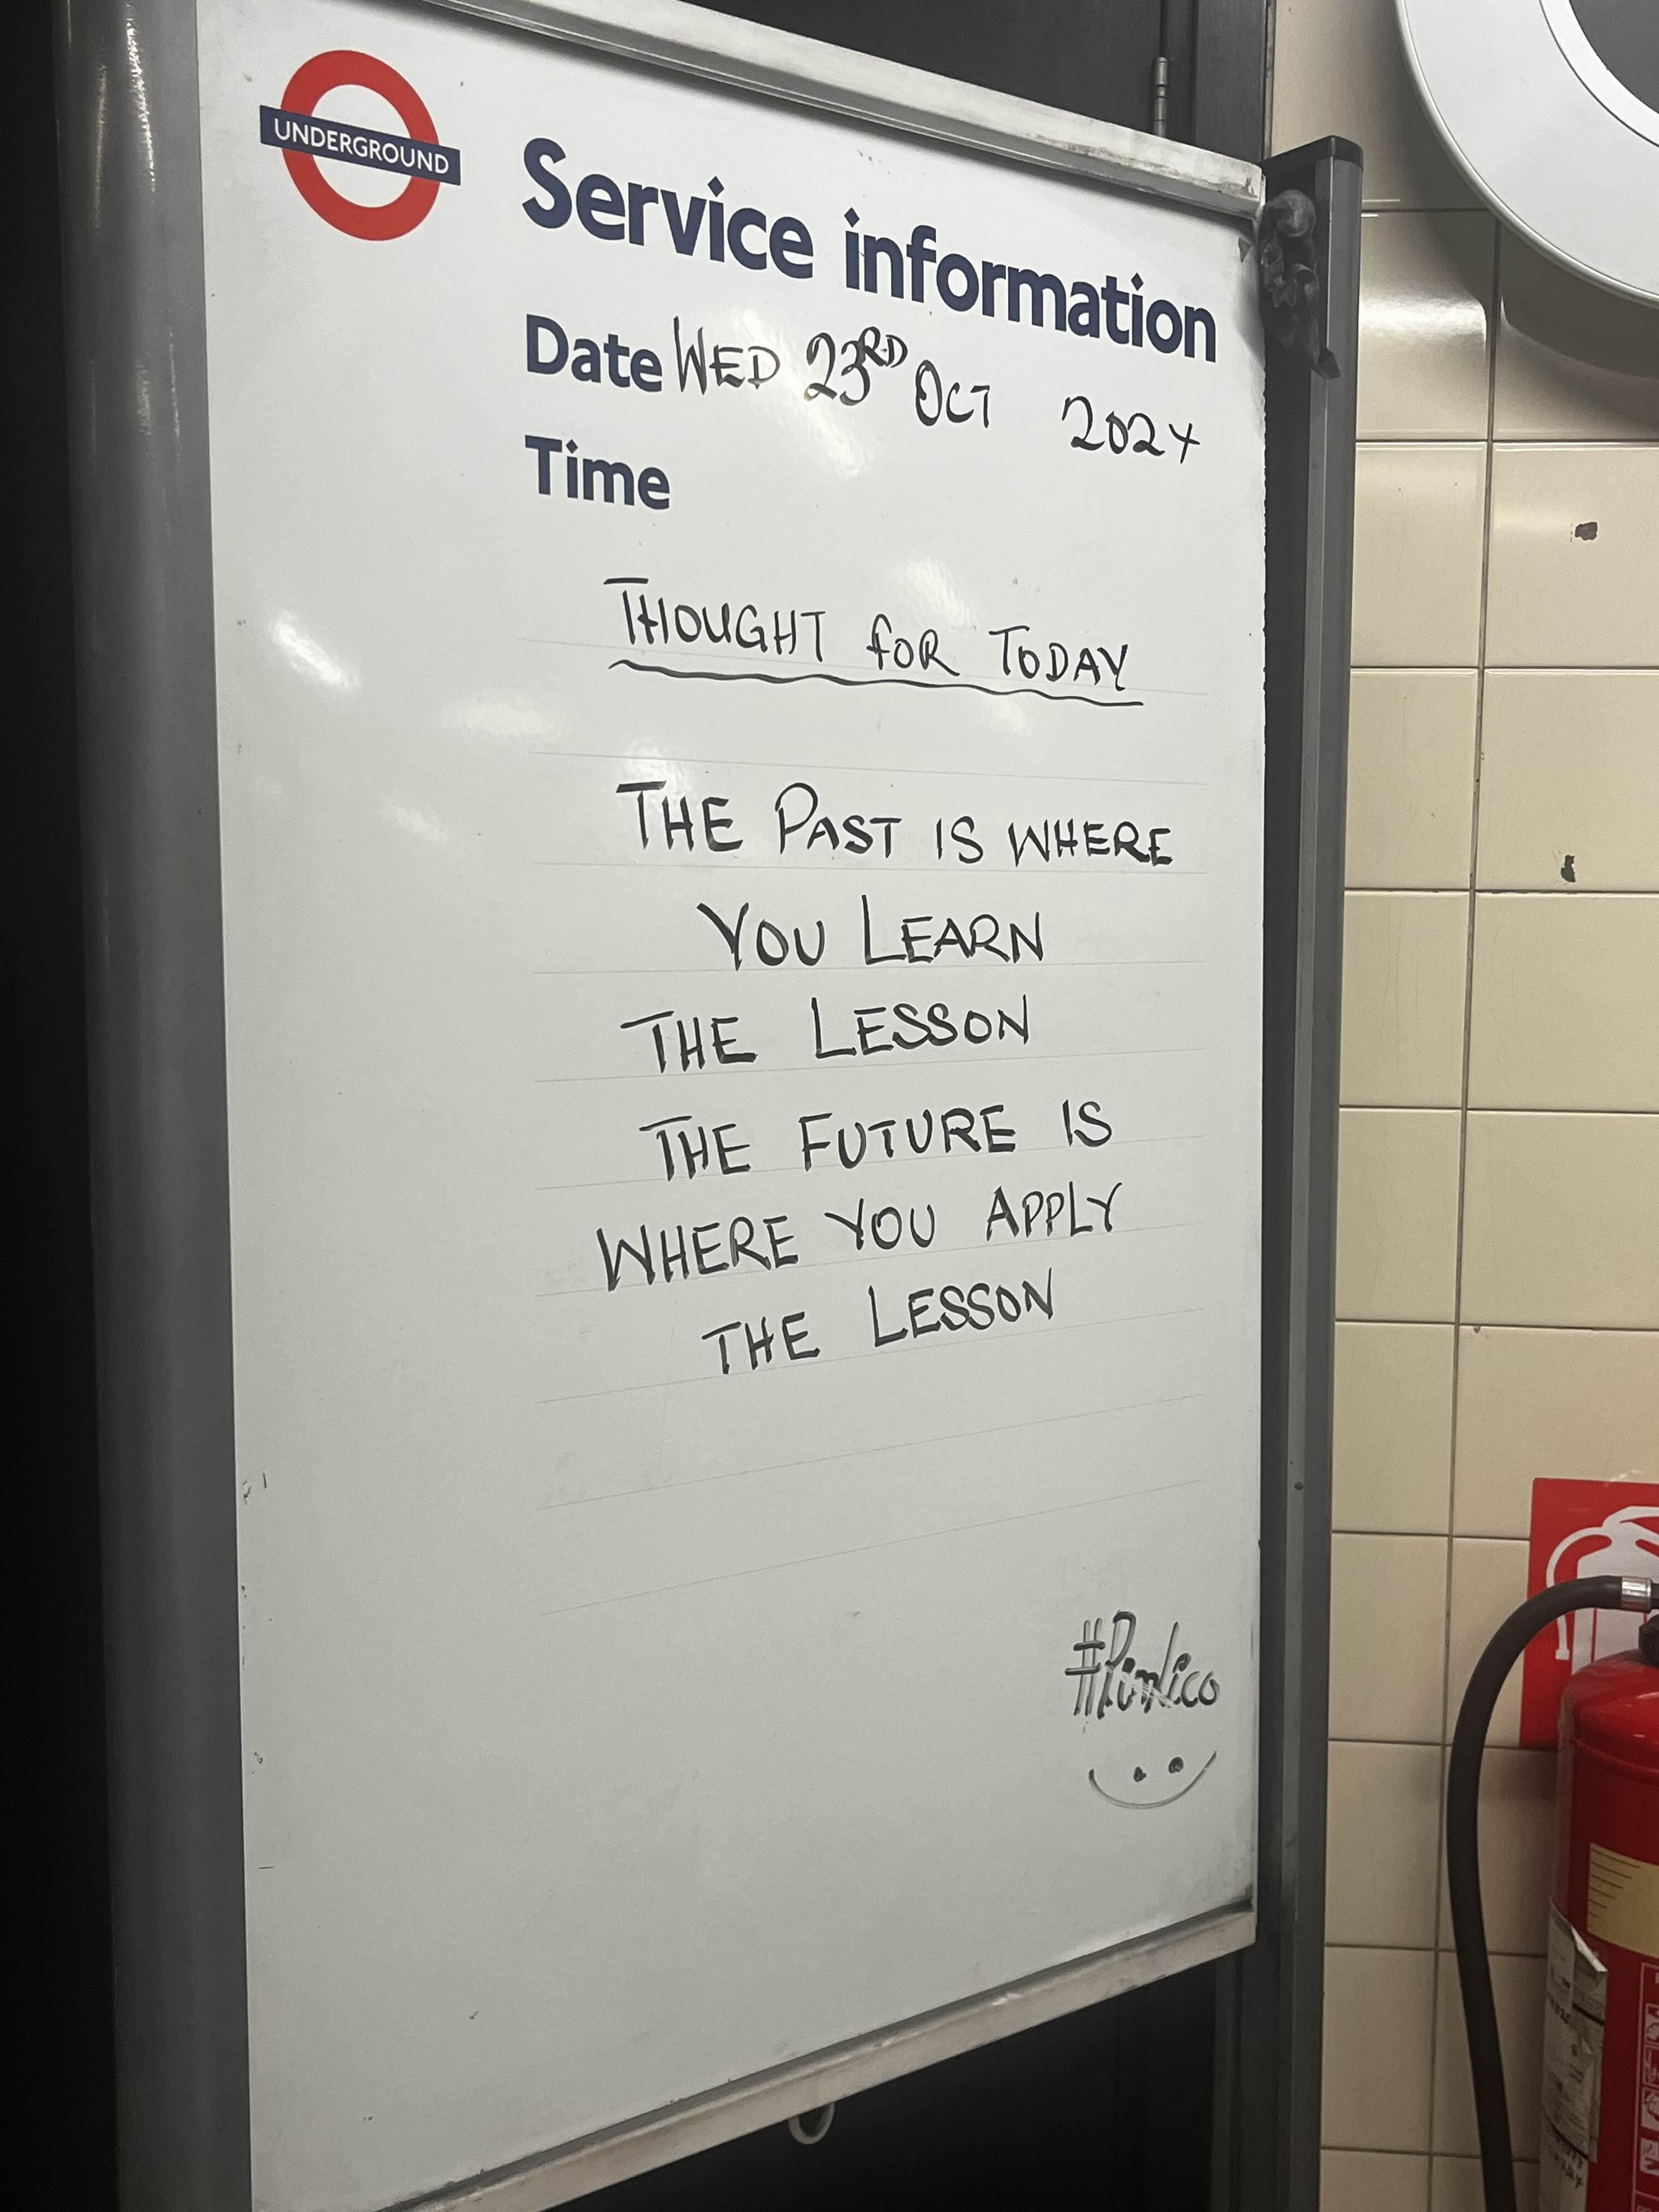 UNDERGROUND
Service information
Date WED 23RD OCT 2024
Time
THOUGHT FOR TODAY
THE PAST IS WHERE
YOU LEARN
THE LESSON
THE FUTURE IS
WHERE YOU APPLY
THE LESSON
#Pimlico